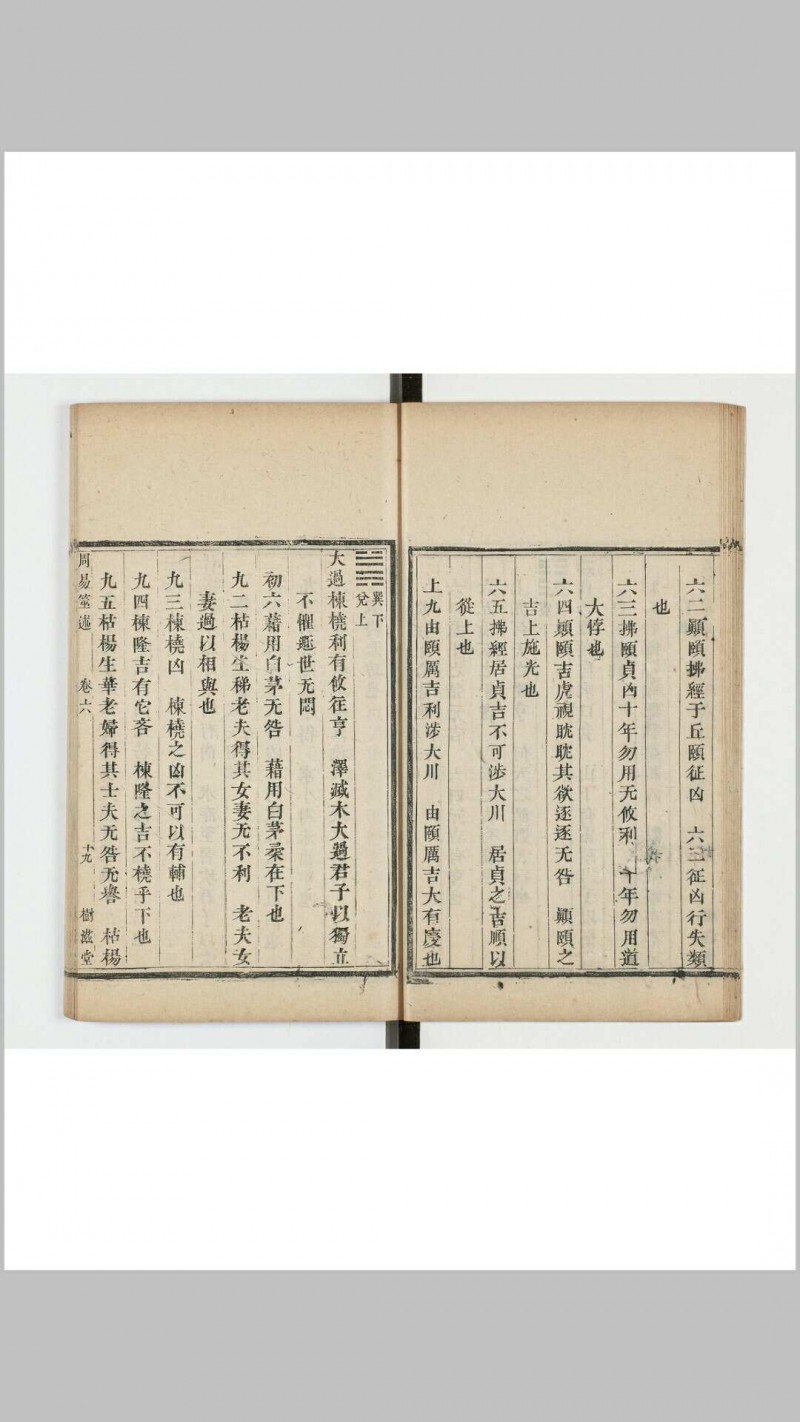 六二顚頤拂經于丘頤征凶　六二征凶行失類
也
六三拂頤貞凶十年勿用无攸利　十年勿用道
大悖也
六四顚頤吉虎視眈眈其欲逐逐无咎　顚頤之
吉上施光也
六五拂經居貞吉不可涉大川　居貞之吉順以
從上也
上九由頤厲吉利涉大川　由頤厲吉大有慶也
巽下
兌上
大過棟橈利有攸往亨　澤滅木大過君子以獨立
不懼遯世无悶
初六藉用白茅无咎　藉用白茅柔在下也
九二枯楊生稊老夫得其女妻无不利　老夫女
妻過以相與也
九三棟橈凶　棟橈之凶不可以有輔也
九四棟隆吉有它吝　棟隆之吉不橈乎下也
九五枯楊生華老婦得其士夫无咎无譽　枯楊
周易筮述　卷六　十九　樹滋堂